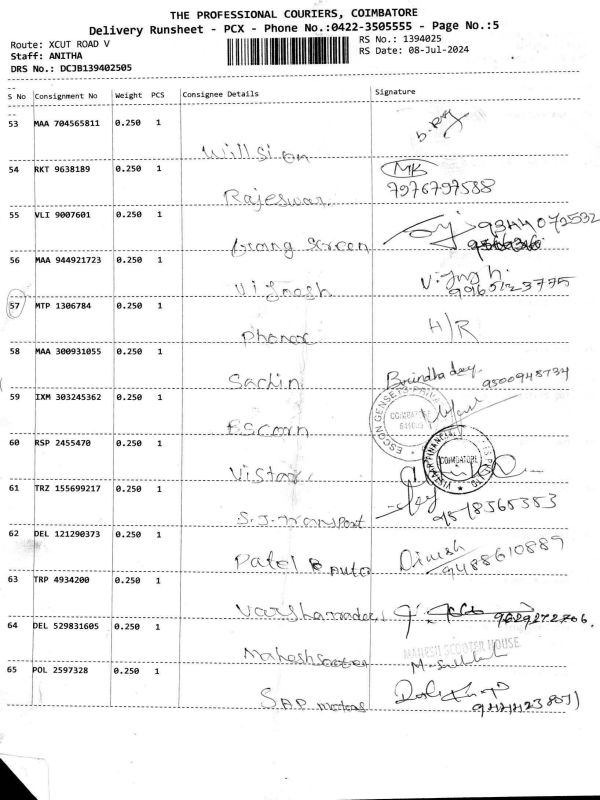 THE PROFESSIONAL COURIERS, COIMBATORE
Delivery Runsheet - PCX - Phone No.:0422-3505555 - Page No.:5
Route: XCUT ROAD V
RS No.: 1394025
Staff: ANITHA
RS Date: 08-Jul-2024
DRS No.: DCJB139402505
S No Consignment No Weight PCS Consignee Details Signature
53 MAA 704565811 0.250 1
Willsion
54 RKT 9638189 0.250 1 MK
Rajeswari 7976797588
55 VLI 9007601 0.250 1 9344072532
Green
56 MAA 944921723 0.250 1
Vignesh 9965123775
57 MTP 1306784 0.250 1
Phonox H/R
58 MAA 300931055 0.250 1
Sachin Brindha dey 9500948734
59 IXM 303245362 0.250 1
ESCON GENSETS PRIVATE
COIMBATORE
Escon
60 RSP 2455470 0.250 1
COIMBATORE
Vistaar
61 TRZ 155699217 0.250 1
S.J. Transport 9578565353
62 DEL 121290373 0.250 1 Dinesh
Patel B Auto 9488610889
63 TRP 4934200 0.250 1
9629272706.
64 DEL 529831605 0.250 1 MAHESH SCOOTER HOUSE
Mahesh Scooter
65 POL 2597328 0.250 1
SAP motors